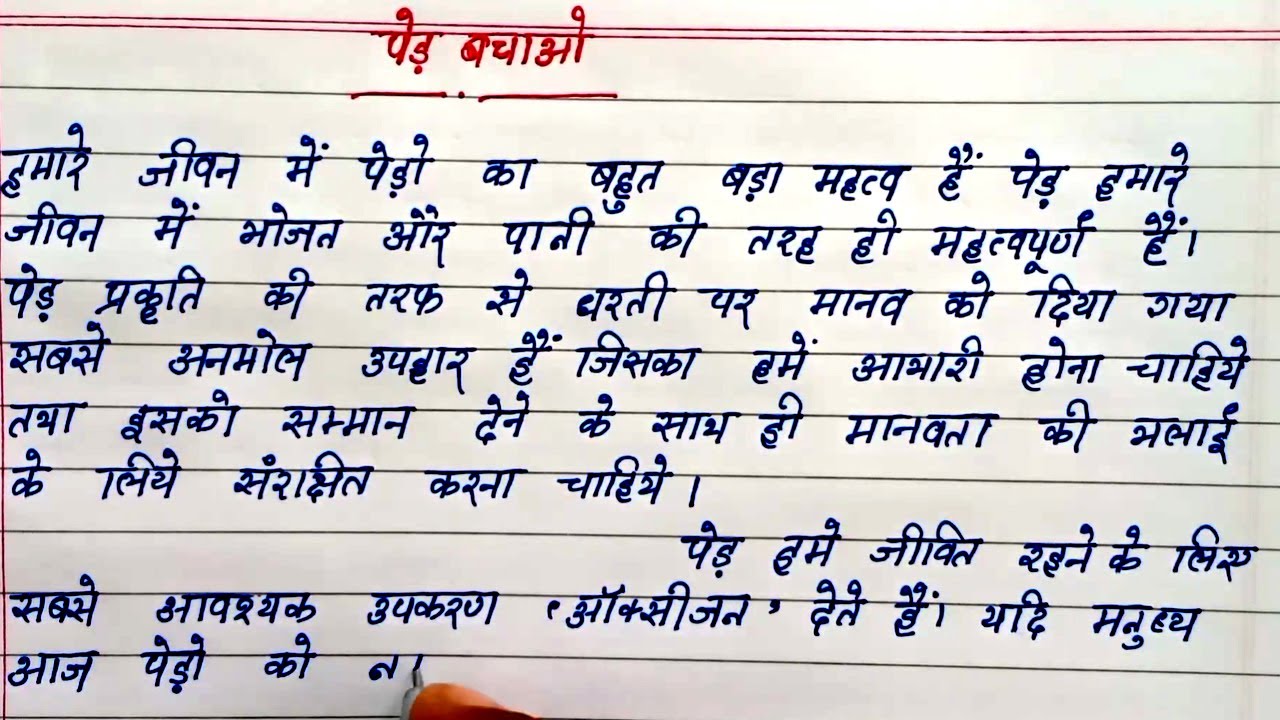 पेड़ बचाओ
हमारे जीवन में पेड़ो का बहुत बड़ा महत्व हैं पेड़ हमारे
जीवन में भोजन और पानी की तरह ही महत्वपूर्ण हैं।
पेड़ प्रकृति की तरफ से धरती पर मानव को दिया गया
सबसे अनमोल उपहार हैं जिसका हमें आभारी होना चाहिये
तथा इसको सम्मान देने के साथ ही मानवता की भलाई
के लिये संरक्षित करना चाहिये।
पेड़ हमे जीवित रहने के लिए
सबसे आवश्यक उपकरण 'ऑक्सीजन' देते हैं। यदि मनुष्य
आज पेड़ो को